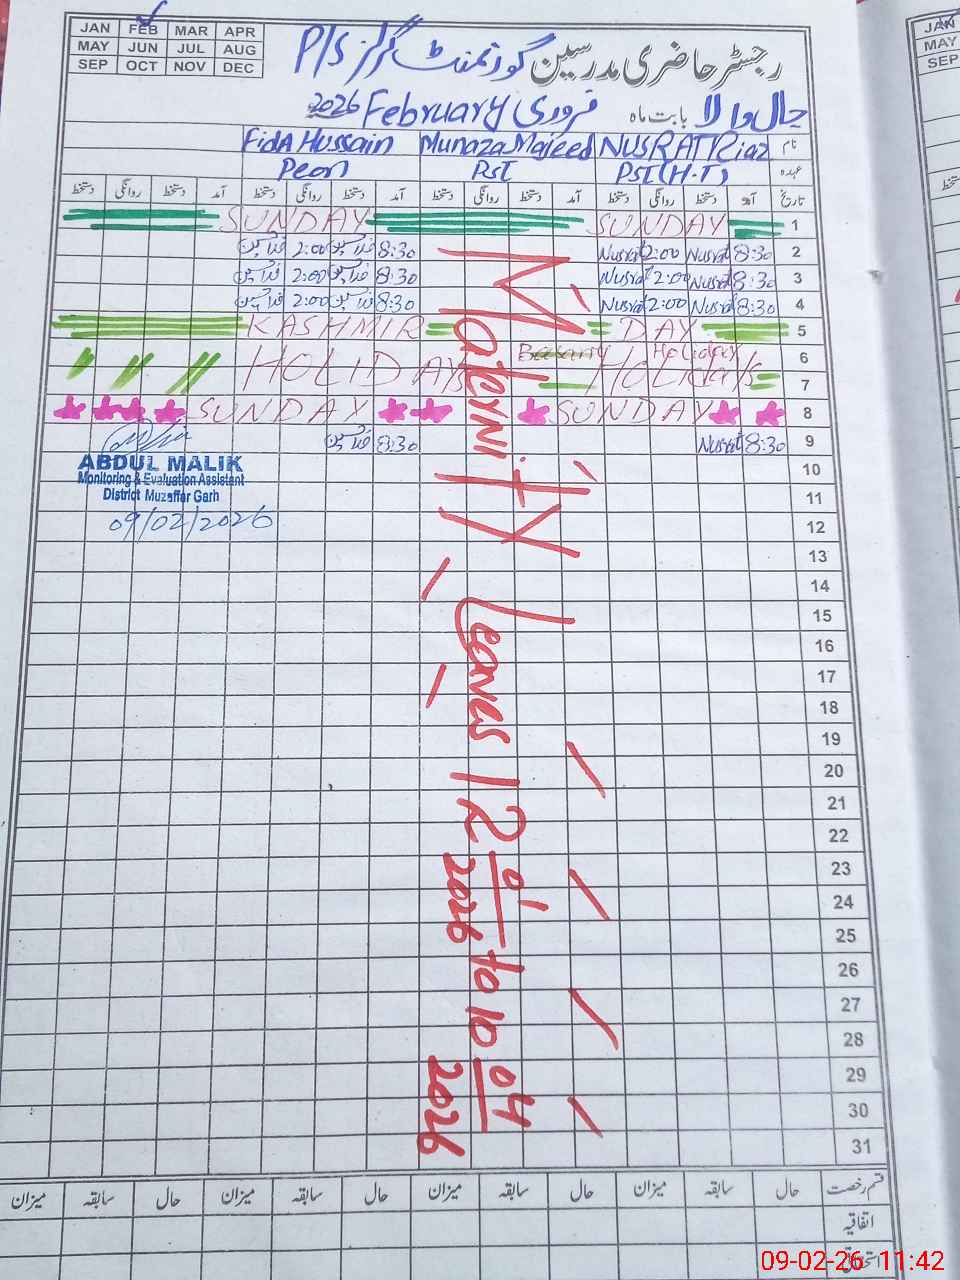 JAN FEB MAR APR
MAY JUN JUL AUG
SEP OCT NOV DEC
رجسٹر حاضری مدرسین گورنمنٹ گرلز P/S
بابت ماہ فروری February 2026
نام NUSRAT Riaz Munaza Majeed Fida Hussain
عہدہ PST(H.T) PST Peon
تاریخ آمد دستخط روانگی دستخط آمد دستخط روانگی دستخط آمد دستخط روانگی دستخط آمد دستخط روانگی دستخط
1 SUNDAY SUNDAY
2 8:30 Nusrat 2:00 Nusrat 8:30 2:00
3 8:30 Nusrat 2:00 Nusrat 8:30 2:00
4 8:30 Nusrat 2:00 Nusrat 8:30 2:00
5 KASHMIR DAY
6 Basant Holiday
7 HOLIDAYS HOLidays
8 SUNDAY SUNDAY
9 8:30 Nusrat 8:30
ABDUL MALIK
Monitoring & Evaluation Assistant
District Muzaffar Garh
09/02/2026
10
11
12
13
14
15
16
17
18
19
20
21
22
23
24
25
26
27
28
29
30
31
Maternity Leaves 12 01 2026 to 10 04 2026
قسم رخصت حال سابقہ میزان حال سابقہ میزان حال سابقہ میزان حال سابقہ میزان
اتفاقیہ
JAN
MAY
SEP
09-02-26 11:42